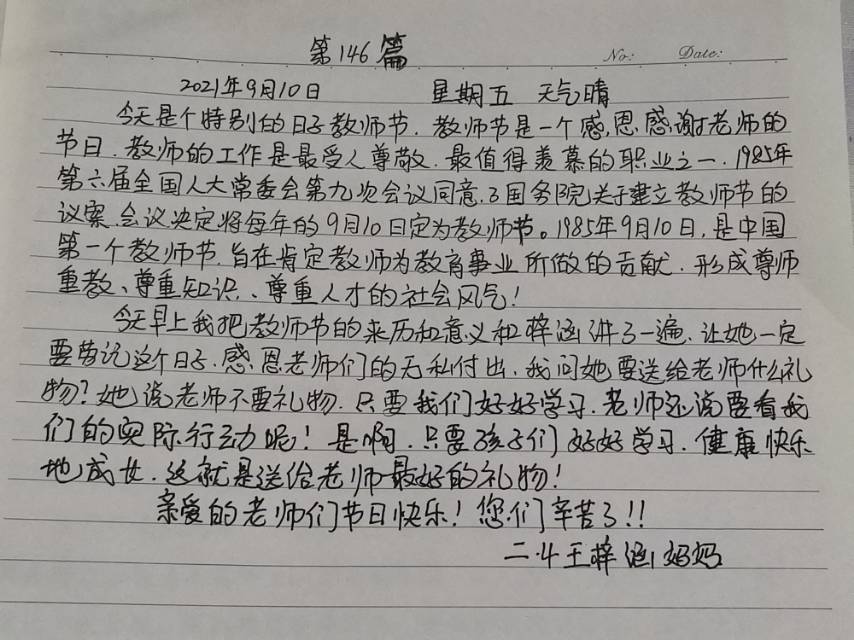 第146篇
No: Date:
2021年9月10日 星期五 天气晴
今天是个特别的日子教师节.教师节是一个感恩感谢老师的
节日.教师的工作是最受人尊敬.最值得羡慕的职业之一.1985年
第六届全国人大常委会第九次会议同意了国务院关于建立教师节的
议案.会议决定将每年的9月10日定为教师节。1985年9月10日,是中国
第一个教师节.旨在肯定教师为教育事业所做的贡献.形成尊师
重教、尊重知识、尊重人才的社会风气!
今天早上我把教师节的来历和意义和梓涵讲了一遍.让她一定
要劳记这个日子.感恩老师们的无私付出.我问她要送给老师什么礼
物?她说老师不要礼物.只要我们好好学习.老师还说要看我
们的实际行动呢!是啊.只要孩子们好好学习.健康快乐
地成长.这就是送给老师最好的礼物!
亲爱的老师们节日快乐!您们辛苦了!!
二.4王梓涵妈妈